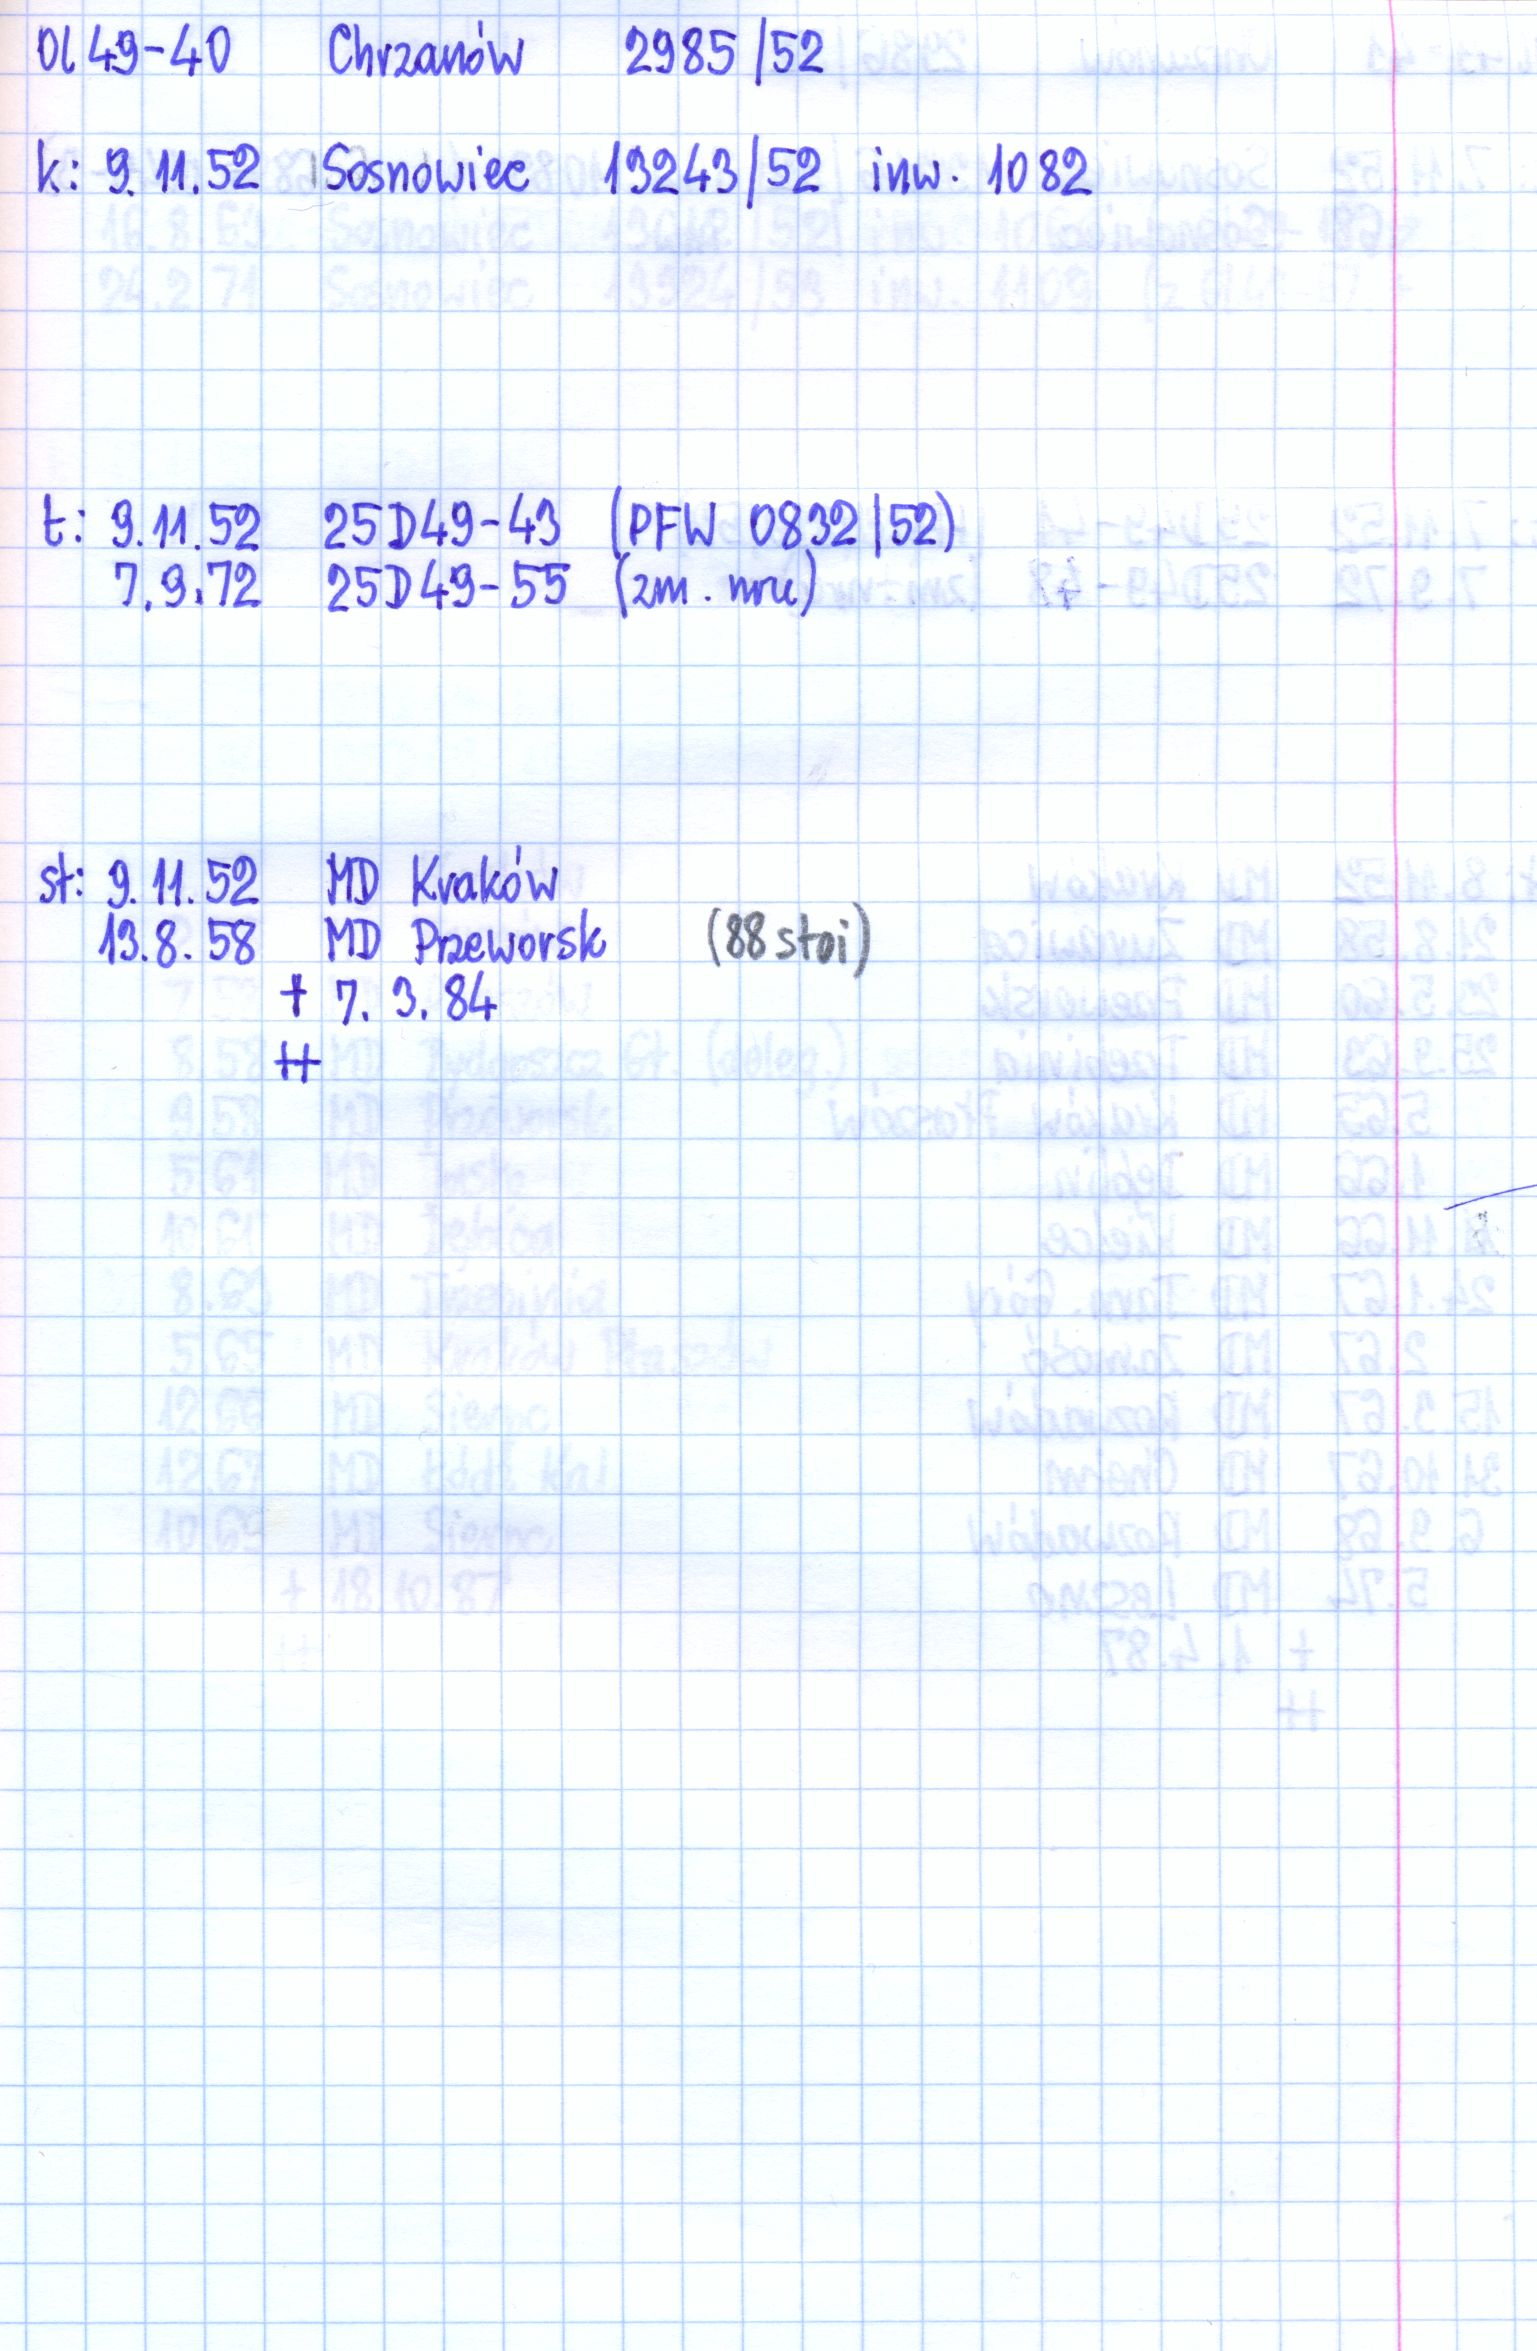 Ol 49-40 Chrzanów 2985/52
k: 9.11.52 Sosnowiec 13243/52 inw. 1082
t: 9.11.52 25D49-43 (PFW 0832/52)
7.9.72 25D49-55 (zm. nru)
st: 9.11.52 MD Kraków
13.8.58 MD Przeworsk (88 stoi)
+ 7.3.84
++